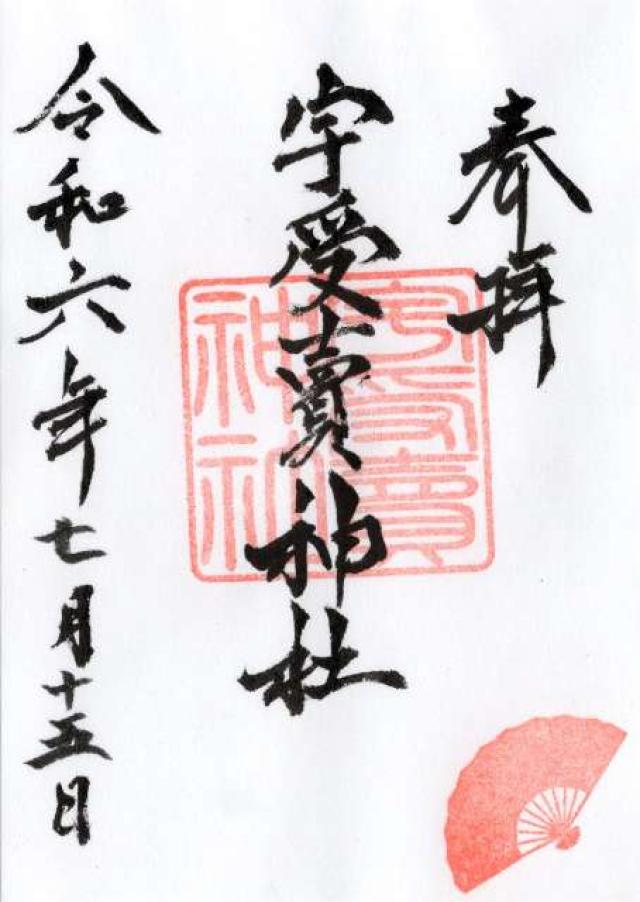 奉拝
宇受賣神社
令和六年七月十五日
宇受賣
神社